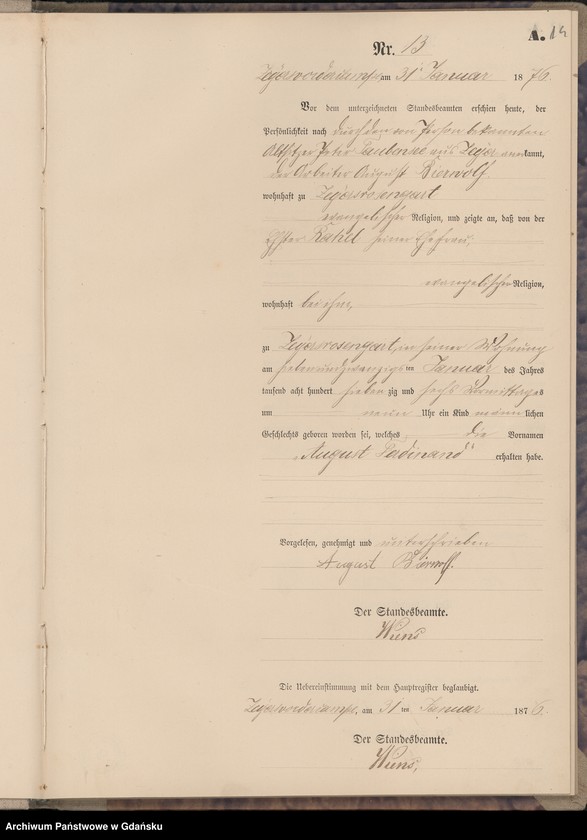 A. 14
Nr. 13
Zeyersvorderkampen am 31 Januar 1876.
Vor dem unterzeichneten Standesbeamten erschien heute, der
Persönlichkeit nach durch den von Person bekannten
Altsitzer Peter aus Zeyer anerkannt,
der Arbeiter August Bierwolf.
wohnhaft zu Zeyersrosengart
evangelischer Religion, und zeigte an, daß von der
seiner Ehefrau,
evangelischer Religion,
wohnhaft bei ihm,
zu Zeyersrosengart, in seiner Wohnung
am siebenundzwanzigsten Januar des Jahres
tausend acht hundert siebenzig und sechs Vormittags
um neun Uhr ein Kind männlichen
Geschlechts geboren worden sei, welches die Vornamen
„August Ferdinand“ erhalten habe.
Vorgelesen, genehmigt und unterschrieben
August Bierwolf.
Der Standesbeamte.
Wuns
Die Uebereinstimmung mit dem Hauptregister beglaubigt.
Zeyersvorderkampen, am 31 ten Januar 1876.
Der Standesbeamte.
Wuns.
Archiwum Państwowe w Gdańsku